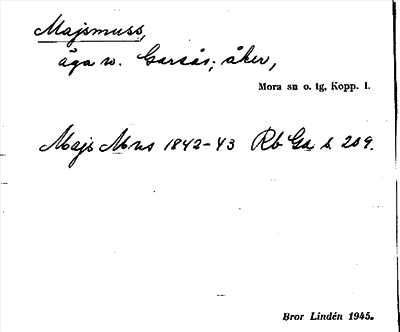 Majsmuss,
äga w. Garsås; åker,
Mora sn o. tg, Kopp. l.
Majs Mus 1842-43 Rb Ga s. 209.
Bror Lindén 1945.